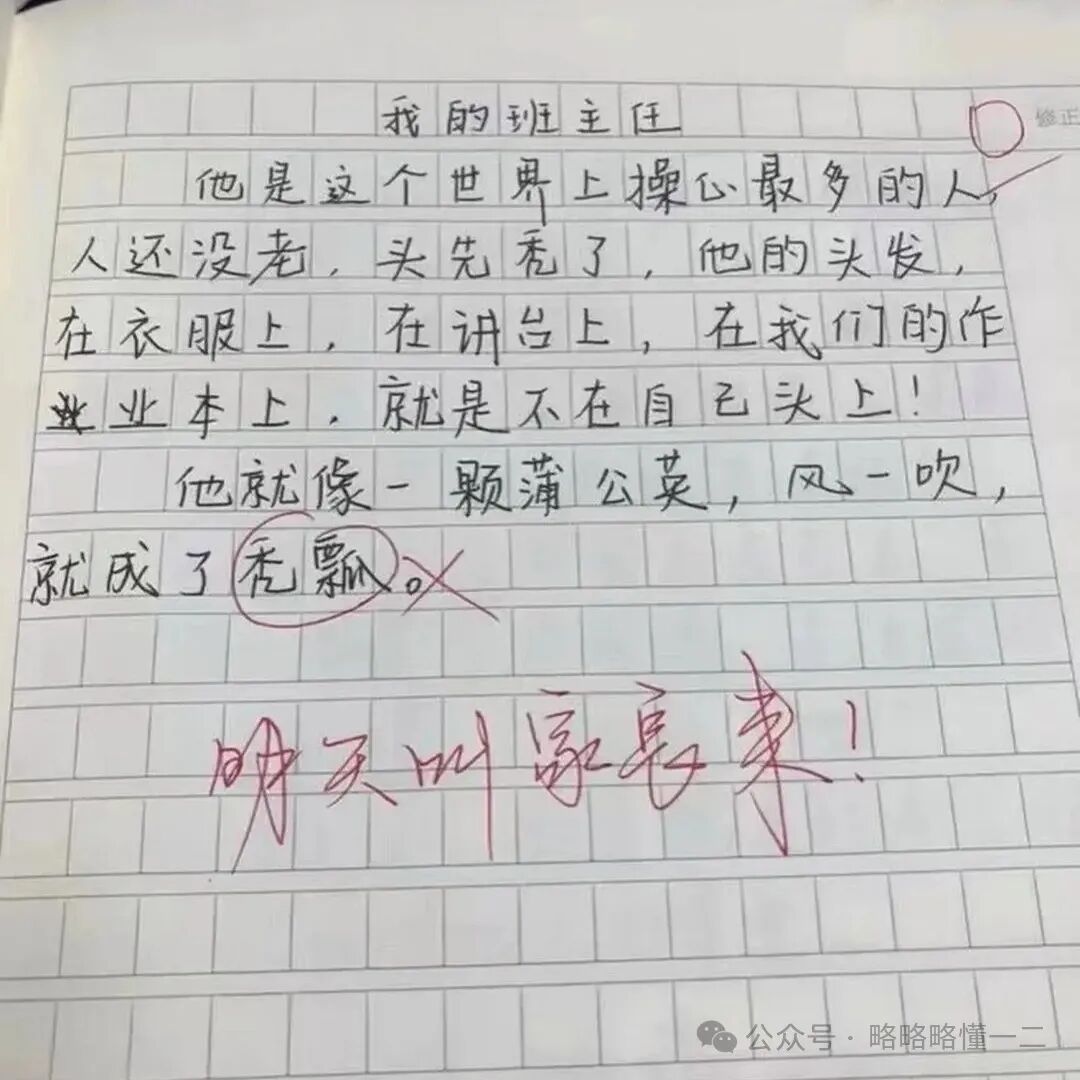 我的班主任
修正
他是这个世界上操心最多的人,
人还没老,头先秃了,他的头发,
在衣服上,在讲台上,在我们的作
业本上,就是不在自己头上!
他就像一颗蒲公英,风一吹,
就成了秃瓢。
明天叫家长来!
公众号·略略略懂一二